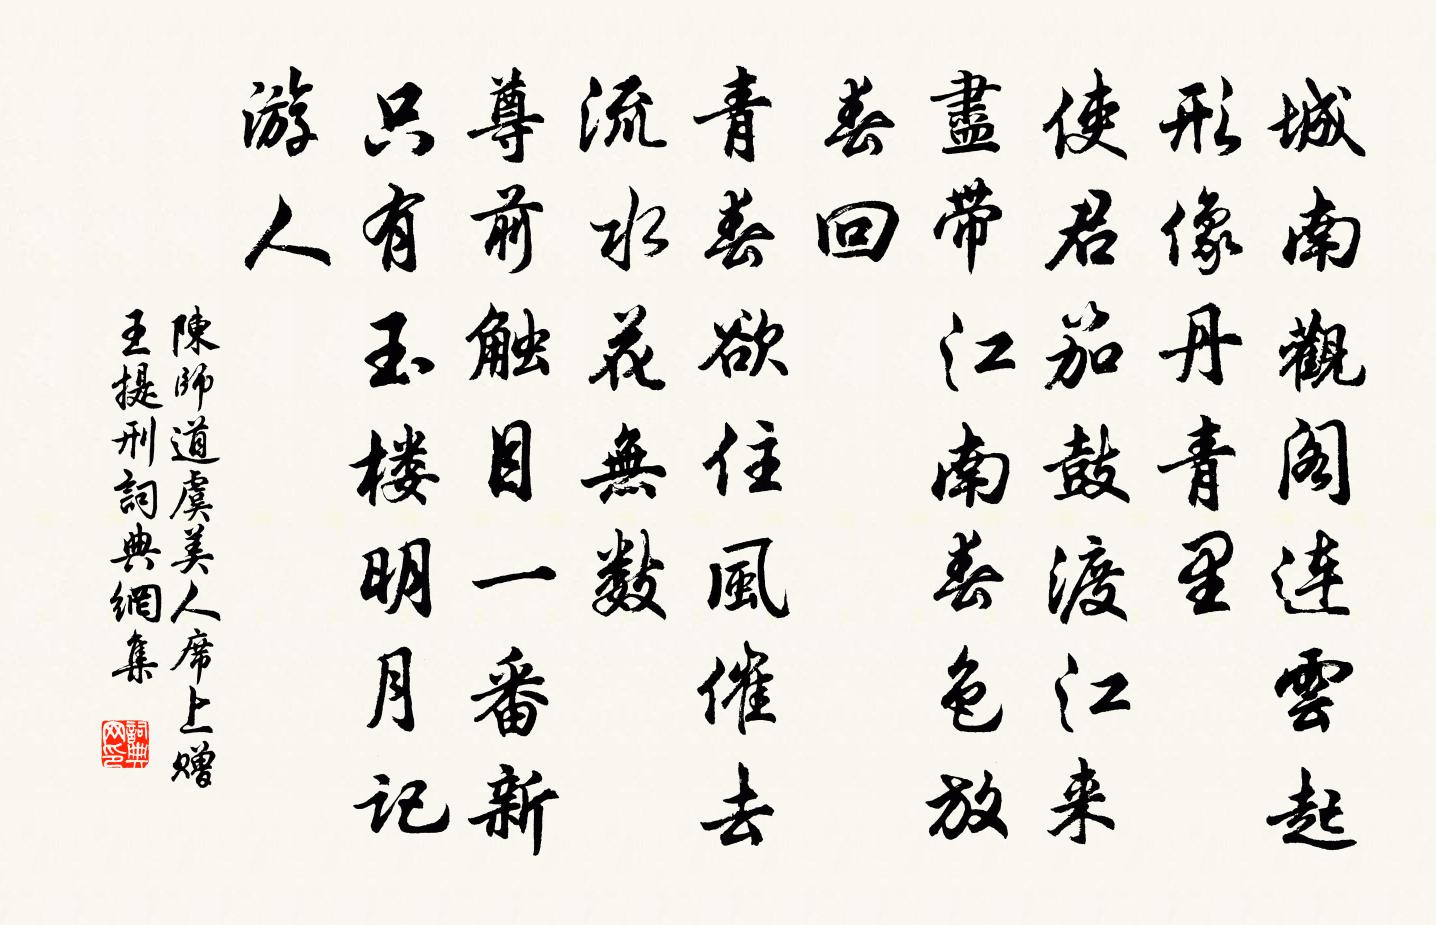 城南觀阁连雲起
形像丹青里
使君笳鼓渡江来
盡带江南春色放
春回
青春欲住風催去
流水花無数
尊前触目一番新
只有玉楼明月记
游人
陳師道虞美人席上赠
王提刑詞典網集
詞典
网印